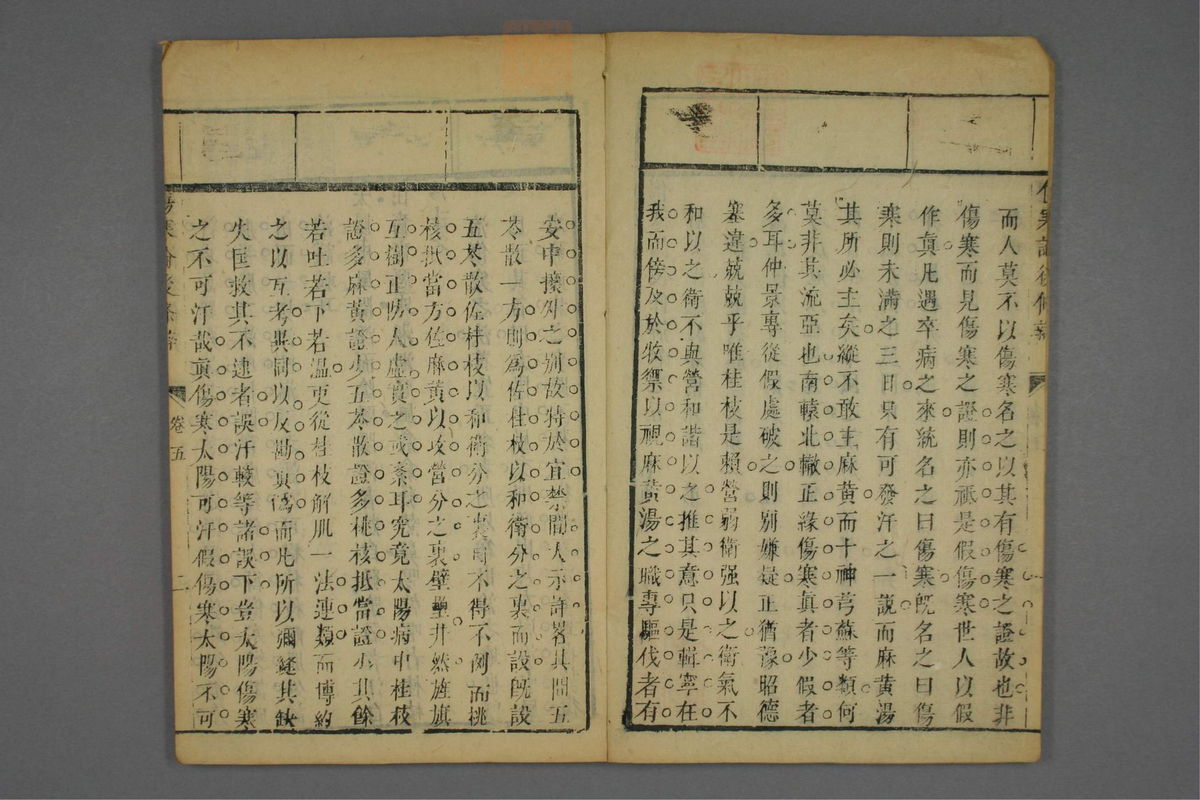 而人莫不以傷寒名之以其有傷寒之證故也非
傷寒而見傷寒之證則亦祗是假傷寒世人以假
作眞凡遇卒病之來統名之曰傷寒旣名之曰傷
寒則未滿之三日只有可發汗之一說而麻黃湯
其所必主矣縱不敢主麻黃而十神芎蘇等類何
莫非其流亞也南轅北轍正緣傷寒眞者少假者
多耳仲景專從假處破之則別嫌疑正猶豫昭德
塞違兢兢乎唯桂枝是賴營弱衛强以之衛氣不
和以之衛不與營和諧以之推其意只是輯寧在
我而傍及於牧禦以視麻黃湯之職專驅伐者有
安中攘外之別故特於宜禁間大示詳畧其間五
苓散一方則爲佐桂枝以和衛分之裏而設旣設
五苓散佐桂枝以和衛分之裏自不得不例而桃
核抵當方佐麻黃以攻營分之裏壁壘井然旌旗
互樹正防人虛實之或紊耳究竟太陽病中桂枝
證多麻黃證少五苓散證多桃核抵當證少其餘
若吐若下若溫更從桂枝解肌一法連類而博約
之以互考異同以反勘眞僞而凡所以彌縫其缺
失匡救其不逮者誤汗較等諸誤下豈太陽傷寒
之不可汗哉眞傷寒太陽可汗假傷寒太陽不可
卷五
二